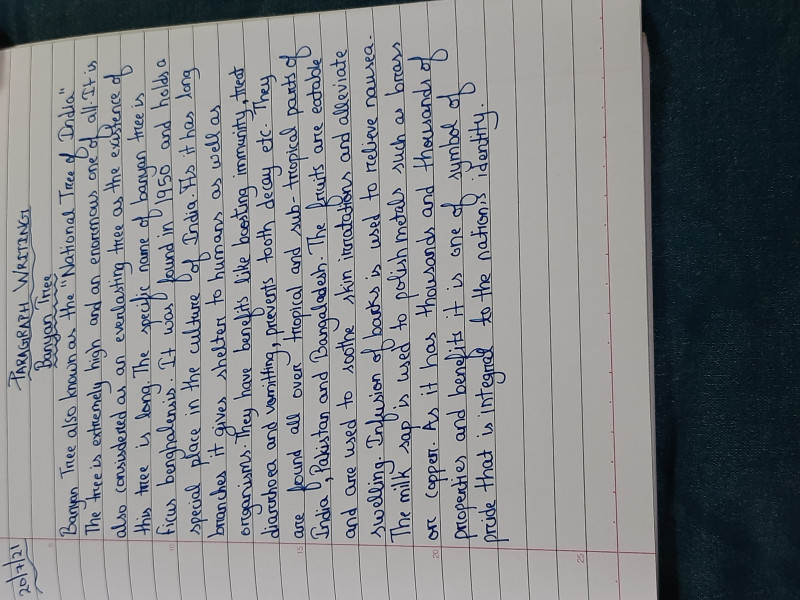 20/7/21
PARAGRAPH WRITING
Banyan Tree
Banyan Tree also known as the "National Tree of India"
The tree is extremely high and an enormous one of all. It is
also considered as an everlasting tree as the existence of
this tree is long. The specific name of banyan tree is
ficus benghalensis. It was found in 1950 and holds a
special place in the culture of India. As it has long
branches it gives shelter to humans as well as
organisms. They have benefits like boosting immunity, treat
diarrhoea and vomitting, prevents tooth decay etc. They
are found all over tropical and sub-tropical parts of
India, Pakistan and Bangaladesh. The fruits are eatable
and are used to soothe skin irratations and alleviate
swelling. Infusion of barks is used to relieve nausea.
The milk sap is used to polish metals such as brass
or copper. As it has thousands and thousands of
properties and benefits it is one of symbol of
pride that is integral to the nation's identity.
5
10
15
20
25